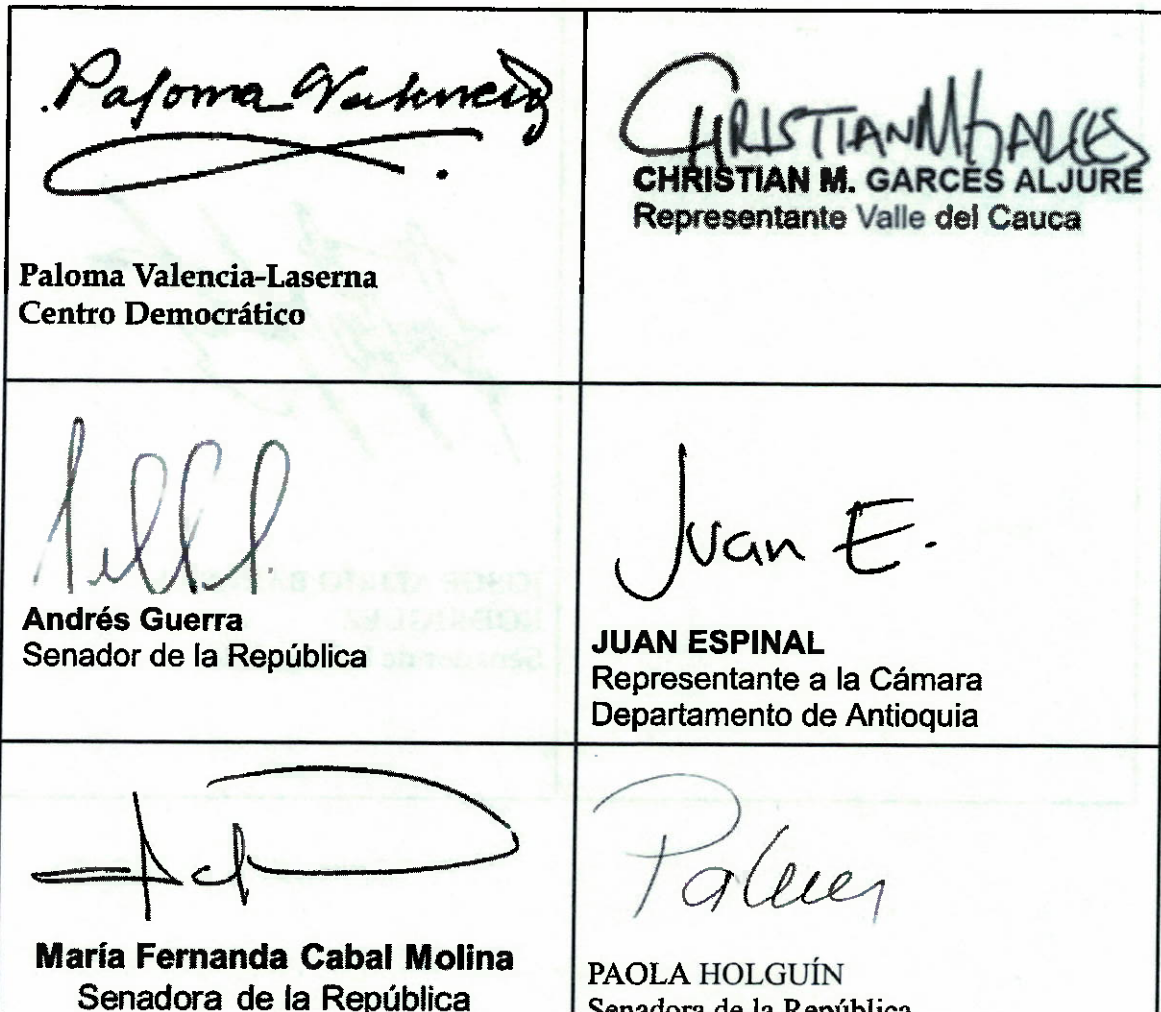 Paloma Valencia
Paloma Valencia-Laserna
Centro Democrático
CHRISTIANMGARCES
CHRISTIAN M. GARCES ALJURE
Representante Valle del Cauca
Andrés Guerra
Senador de la República
Juan E.
JUAN ESPINAL
Representante a la Cámara
Departamento de Antioquia
María Fernanda Cabal Molina
Senadora de la República
PAOLA HOLGUÍN
Senadora de la República